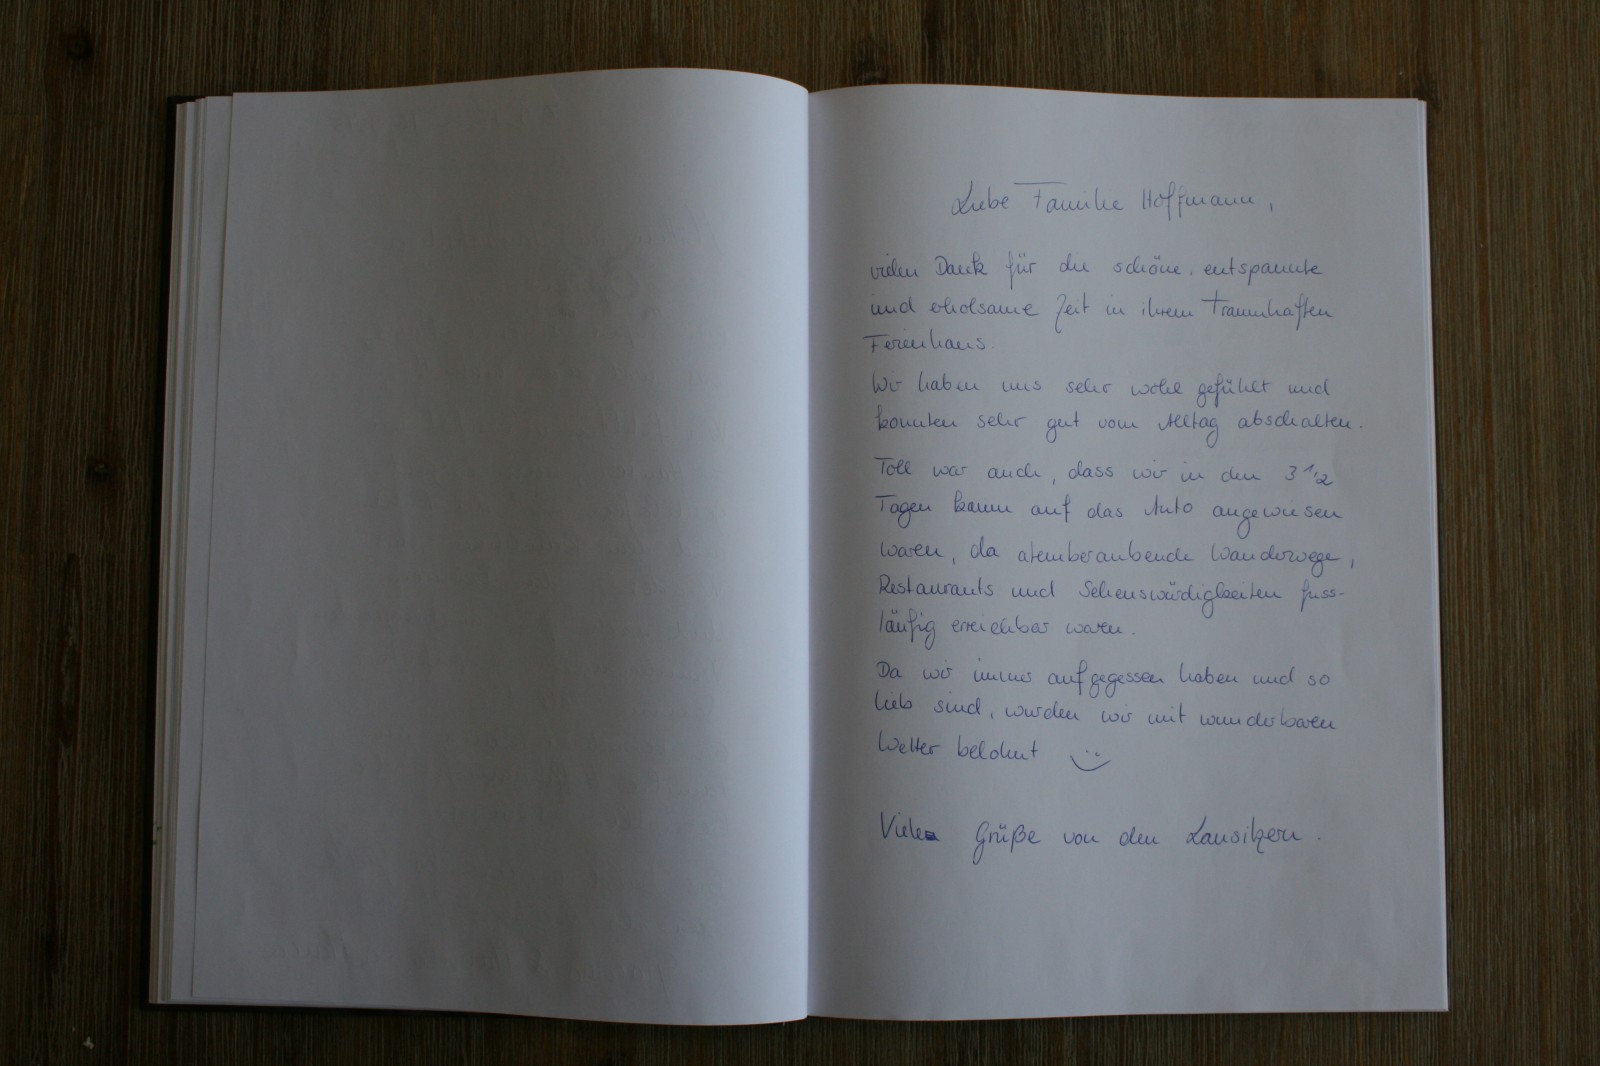 Liebe Familie Hoffmann,
vielen Dank für die schöne, entspannte
und erholsame Zeit in ihrem Traumhaften
Ferienhaus.
Wir haben uns sehr wohl gefühlt und
konnten sehr gut vom Alltag abschalten.
Toll war auch, dass wir in den 3 1/2
Tagen kaum auf das Auto angewiesen
waren, da atemberaubende Wanderwege,
Restaurants und Sehenswürdigkeiten fuss-
läufig erreichbar waren.
Da wir immer aufgegessen haben und so
lieb sind, wurden wir mit wunderbaren
Wetter belohnt :)
Viele Grüße von den Lausitzern.